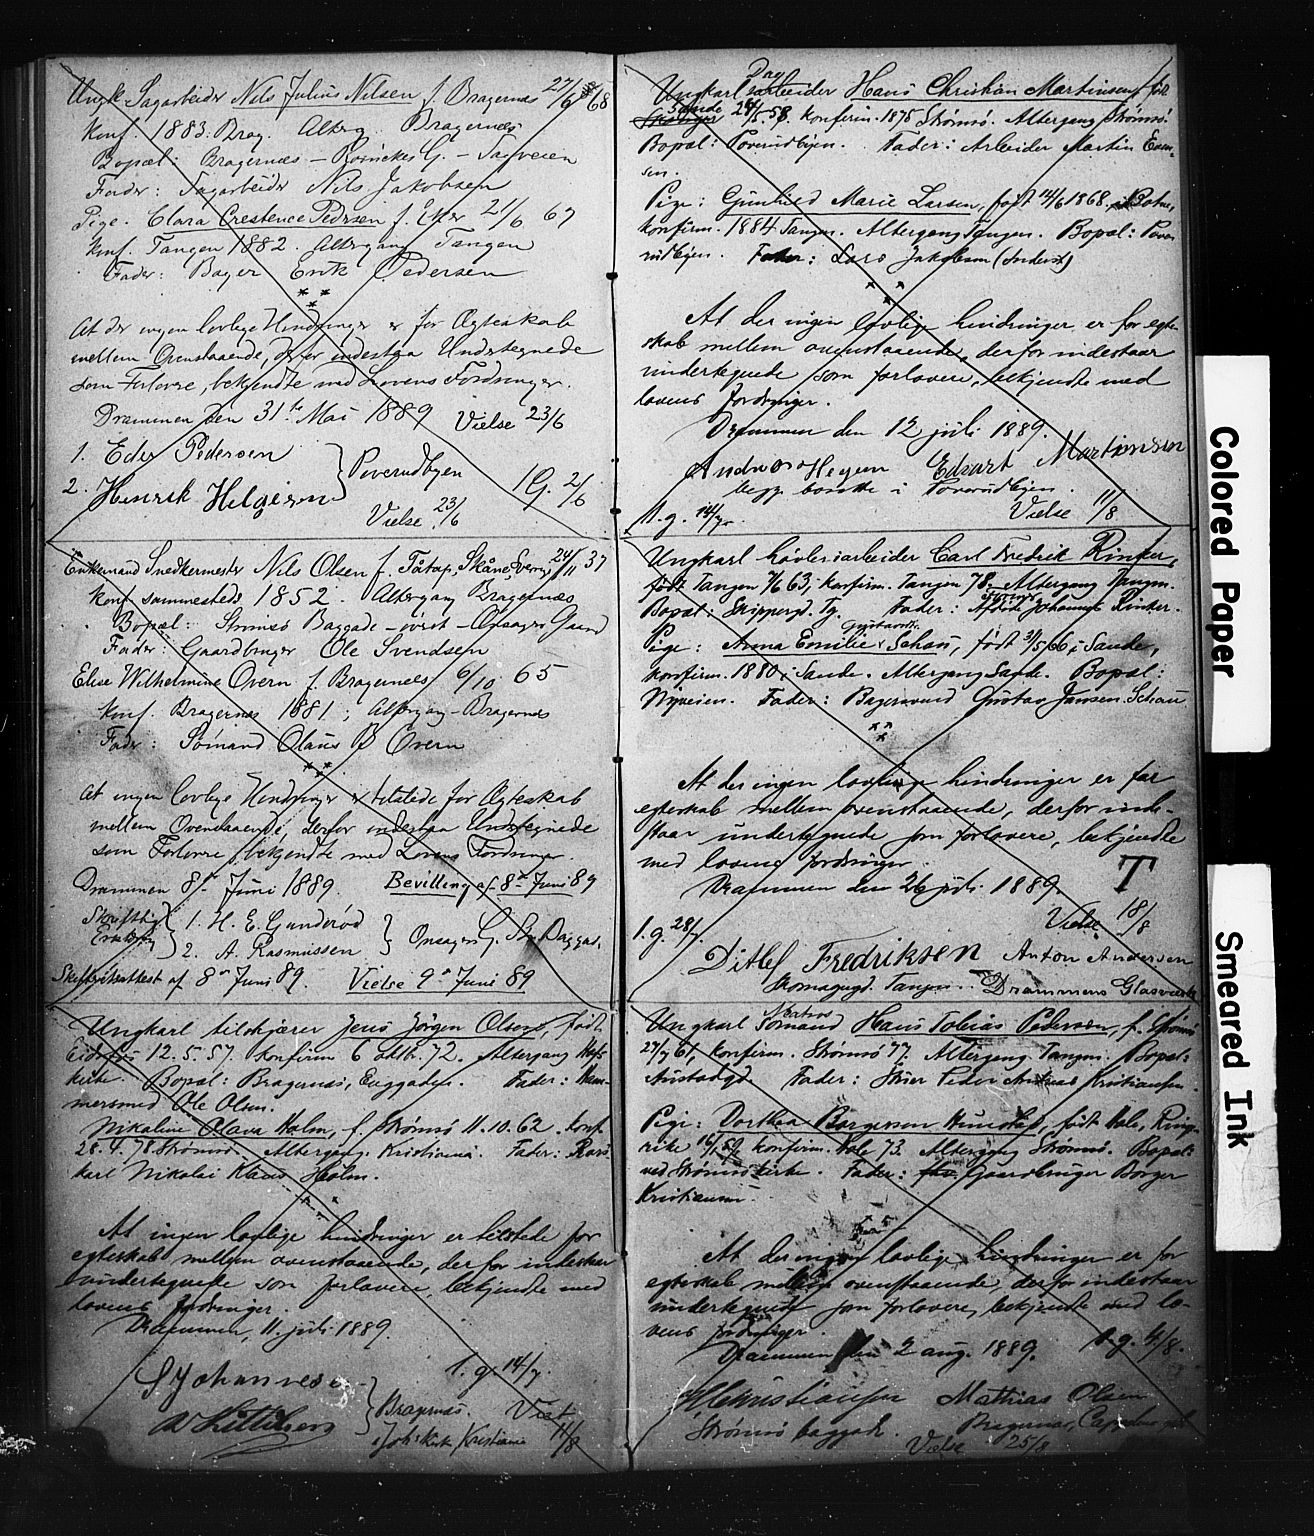 Ungk. Sagarbeider Nils Julius Nilsen f. Bragernæs 27/6 68
Konf. 1883. Brag. Altrg. Bragernæs
Bopæl: Bragernæs – G. – Tagveien
Fader: Sagarbeider Nils Jakobsen
Pige. Clara Crestence Pedersen f. 21/6 67
Konf. Tangen 1882. Altergang Tangen
Fader: Bager Erik Pedersen
At der ingen lovlige Hindringer er for Ægteskab
mellem Ovenstaaende, derfor indestaa Undertegnede
som Forlovere, bekjendte med Lovens Fordringer.
Drammen den 31te Mai 1889 Vielse 23/6
1. Pedersen
2. Henrik Helgesen Poverudbyen 1 G. 2/6
Vielse 23/6
Enkemand Snedkermester Nils Olsen f. Skåne, Sverig 24/11 37
Konf. sammesteds 1852. Altergang Bragernæs
Bopæl: Strømsø Baggade – Opsagers Gaard
Fader: Gaardbruger Ole Svendsen
Elise Wilhelmine Overn f. Bragernæs 6/10 65
Konf. Bragernæs 1881; Altergang – Bragernæs
Fader: Sømand Olaus Overn
At ingen lovlige Hindringer er tilstede for Ægteskab
mellem Ovenstaaende, derfor indestaa Undertegnede
som Forlovere, bekjendte med Lovens Fordringer.
Drammen 8de Juni 1889. Bevilling af 8de Juni 89
Skriftlig 1. H. E. Gunderød
2. A. Rasmussen Opsagers G. Baggade
Skifteattest af 8de Juni 89. Vielse 9de Juni 89
Ungkarl tilskjærer Jens Jørgen Olsen, født
12.5.57. konfirm 6 oktb. 72. Altergang
kirke. Bopæl: Bragernæs, Fader: Ham-
mersmed Ole Olsen.
Nikoline Olava Holm, f. Strømsø 11.10.62. konf.
28.4.78 Strømsø. Altergang: Kristiania. Fader:
karl Nikolai Klaus Holm.
At ingen lovlige hindringer er tilstede for
egteskab mellem ovenstaaende, derfor indestaar
undertegnede som forlovere, bekjendte med
lovens fordringer.
Drammen, 11. juli 1889.
S Johannesen 1. g. 14/7.
Bragernæs, Viet
Kristiania 11/8
Dag
Ungkarl arbeider Hans Christian Martinsen, født
Sande 5.58. konfirm. 1875 Strømsø. Altergang Strømsø.
Bopæl: Poverudbyen. Fader: Arbeider Martin Even-
sen.
Pige: Gunhild Marie Larsen, født 14/6 1868. i Botne,
konfirm. 1884 Tangen. Altergang Tangen. Bopæl: Pove-
rudbyen. Fader: Lars Jakobsen
At der ingen lovlige hindringer er for egte-
skab mellem ovenstaaende, derfor indestaar
undertegnede som forlovere, bekjendte med
lovens fordringer.
Drammen den 12 juli 1889.
Andreas Edvart Martinsen
begge boende i Poverudbyen.
1. g. 14/7. Vielse 11/8
Ungkarl høvleriarbeider Carl Fredrik Rinker,
født Tangen 7/6 63; konfirm. Tangen 78. Altergang Tangen.
Bopæl: Skippergd. Tg. Fader: Johannes Rinker.
Gustava
Pige: Anna Emilie Schau, født 31/5 66 i Sande,
konfirm. 1880 i Sande. Altergang Sande. Bopæl:
Nyveien. Fader: Bagersvend Gustav Jansen Schau
At der ingen lovlige hindringer er for
egteskab mellem ovenstaaende, derfor inde-
staar undertegnede som forlovere, bekjendte
med lovens fordringer. T
Drammen den 26 juli 1889
1. g. 28/7. Vielse 18/8
Ditlef Fredriksen Anton Andersen
Tangen. Drammens Glasværk
Ungkarl Matros Sømand Hans Tobias Pedersen, f. Strømsø
27/7 61, konfirm. Strømsø 77. Altergang Tangen. Bopæl:
Austadgd. Fader: Peder Andreas Kristiansen.
Pige: Dorthea Borgersen født Hole, Ringe-
rike 16/1 59, konfirm. Hole 73. Altergang Strømsø. Bopæl:
ved Strømsø kirke. Fader: Gaardbruger Borger
Kristiansen.
At der ingen lovlige hindringer er for
egteskab mellem ovenstaaende, derfor indestaar
undertegnede som forlovere, bekjendte med lo-
vens fordringer.
Drammen den 2 aug. 1889. 1. g. 4/8.
Christiansen Mathias Olsen
Strømsø baggade. Bragernæs,
Vielse 25/8
Colored Paper
Smeared Ink